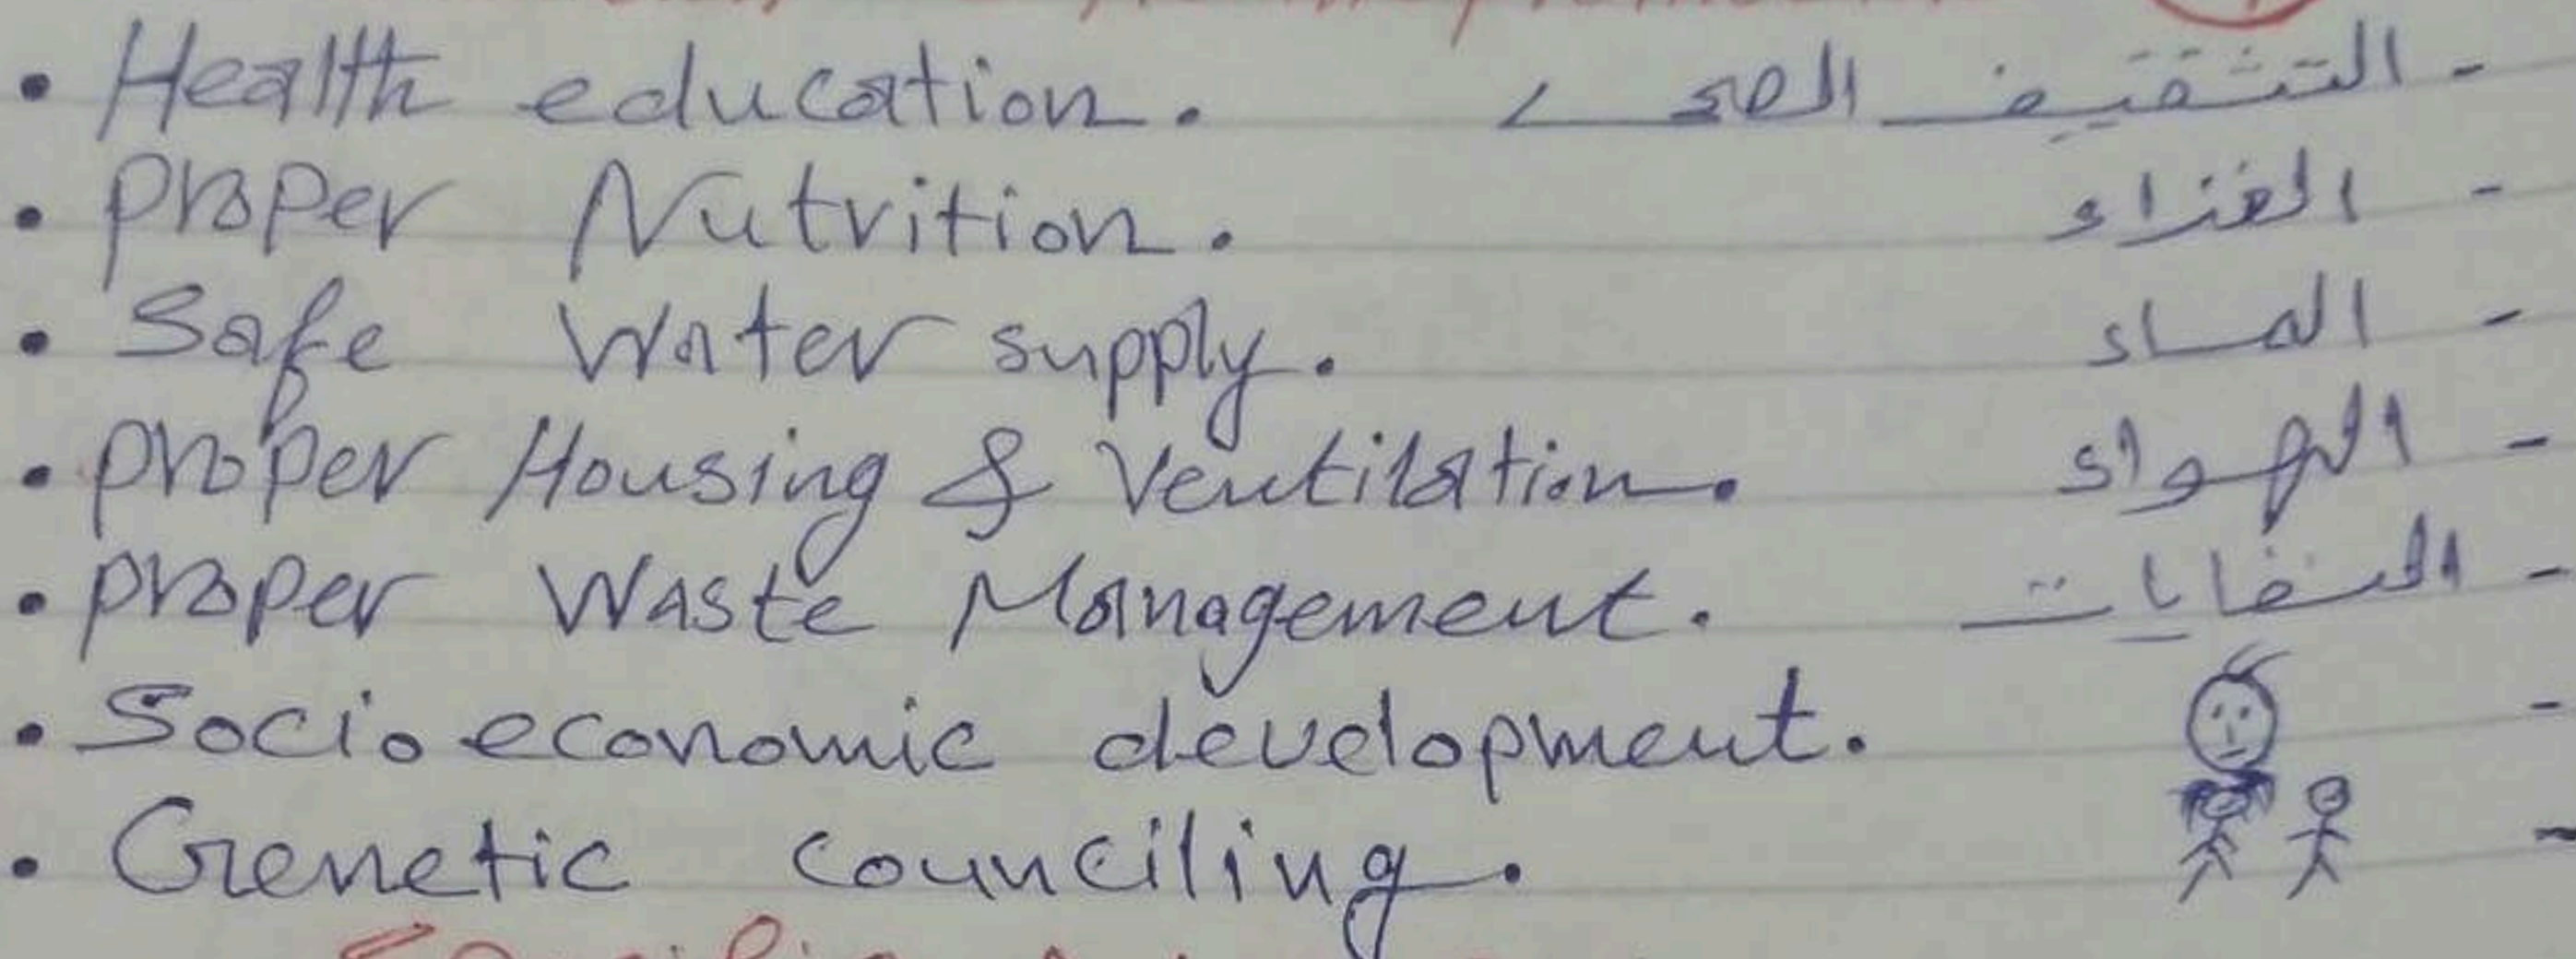 • Health education. - التثقيف الصحي
• proper Nutrition. - الغذاء
• Safe Water supply. - الماء
• proper Housing & Ventilation. - الهواء
• proper Waste Management. - النفايات
• Socio economic development. -
• Genetic counciling. -